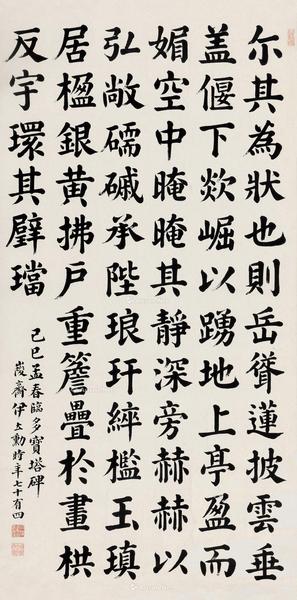 尒其為狀也則岳聳蓮披雲垂
盖偃下欻崛以踴地上亭盈而
媚空中晻晻其靜深旁赫赫以
弘敞礝磩承陛琅玕綷檻玉瑱
居楹銀黃拂戶重簷疊於畫栱
反宇環其璧璫
己巳孟春臨多寶塔碑
峻齋伊立勳時年七十有四